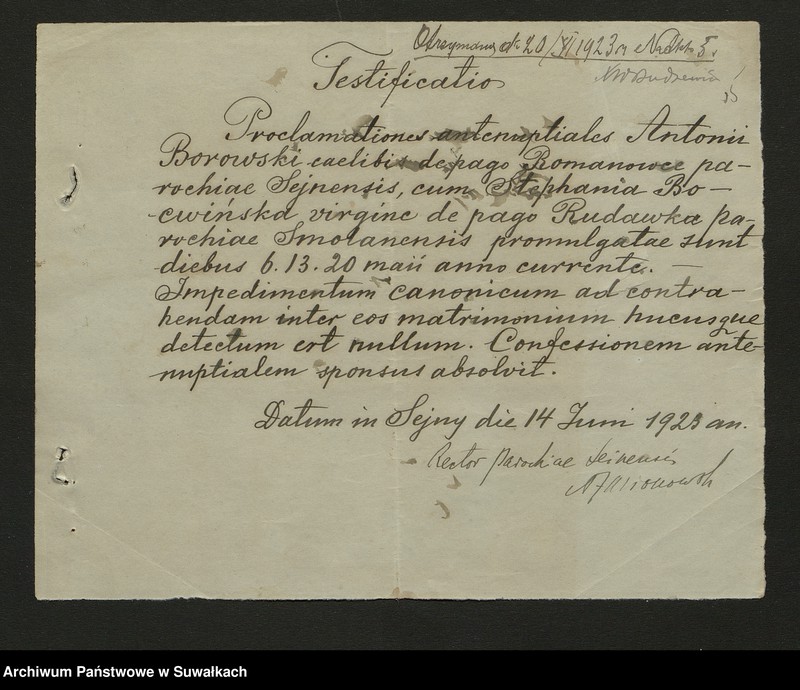 Otrzymano d. 20/XI 1923 r. Nr 5.
Testificatio
Proclamationes antenuptiales Antonii
Borowski caelibis de pago Romanowce pa-
rochiae Sejnensis, cum Stephania Bo-
cwińska virgine de pago Rudawka pa-
rochiae Smolanensis promulgatae sunt
diebus 6. 13. 20 maii anno currente. -
Impedimentum canonicum ad contra-
hendam inter eos matrimonium hucusque
detectum est nullum. Confessionem ante-
nuptialem sponsus absolvit.
Datum in Sejny die 14 Juni 1923 an.
Rector parochiae Seinensis
Archiwum Państwowe w Suwałkach